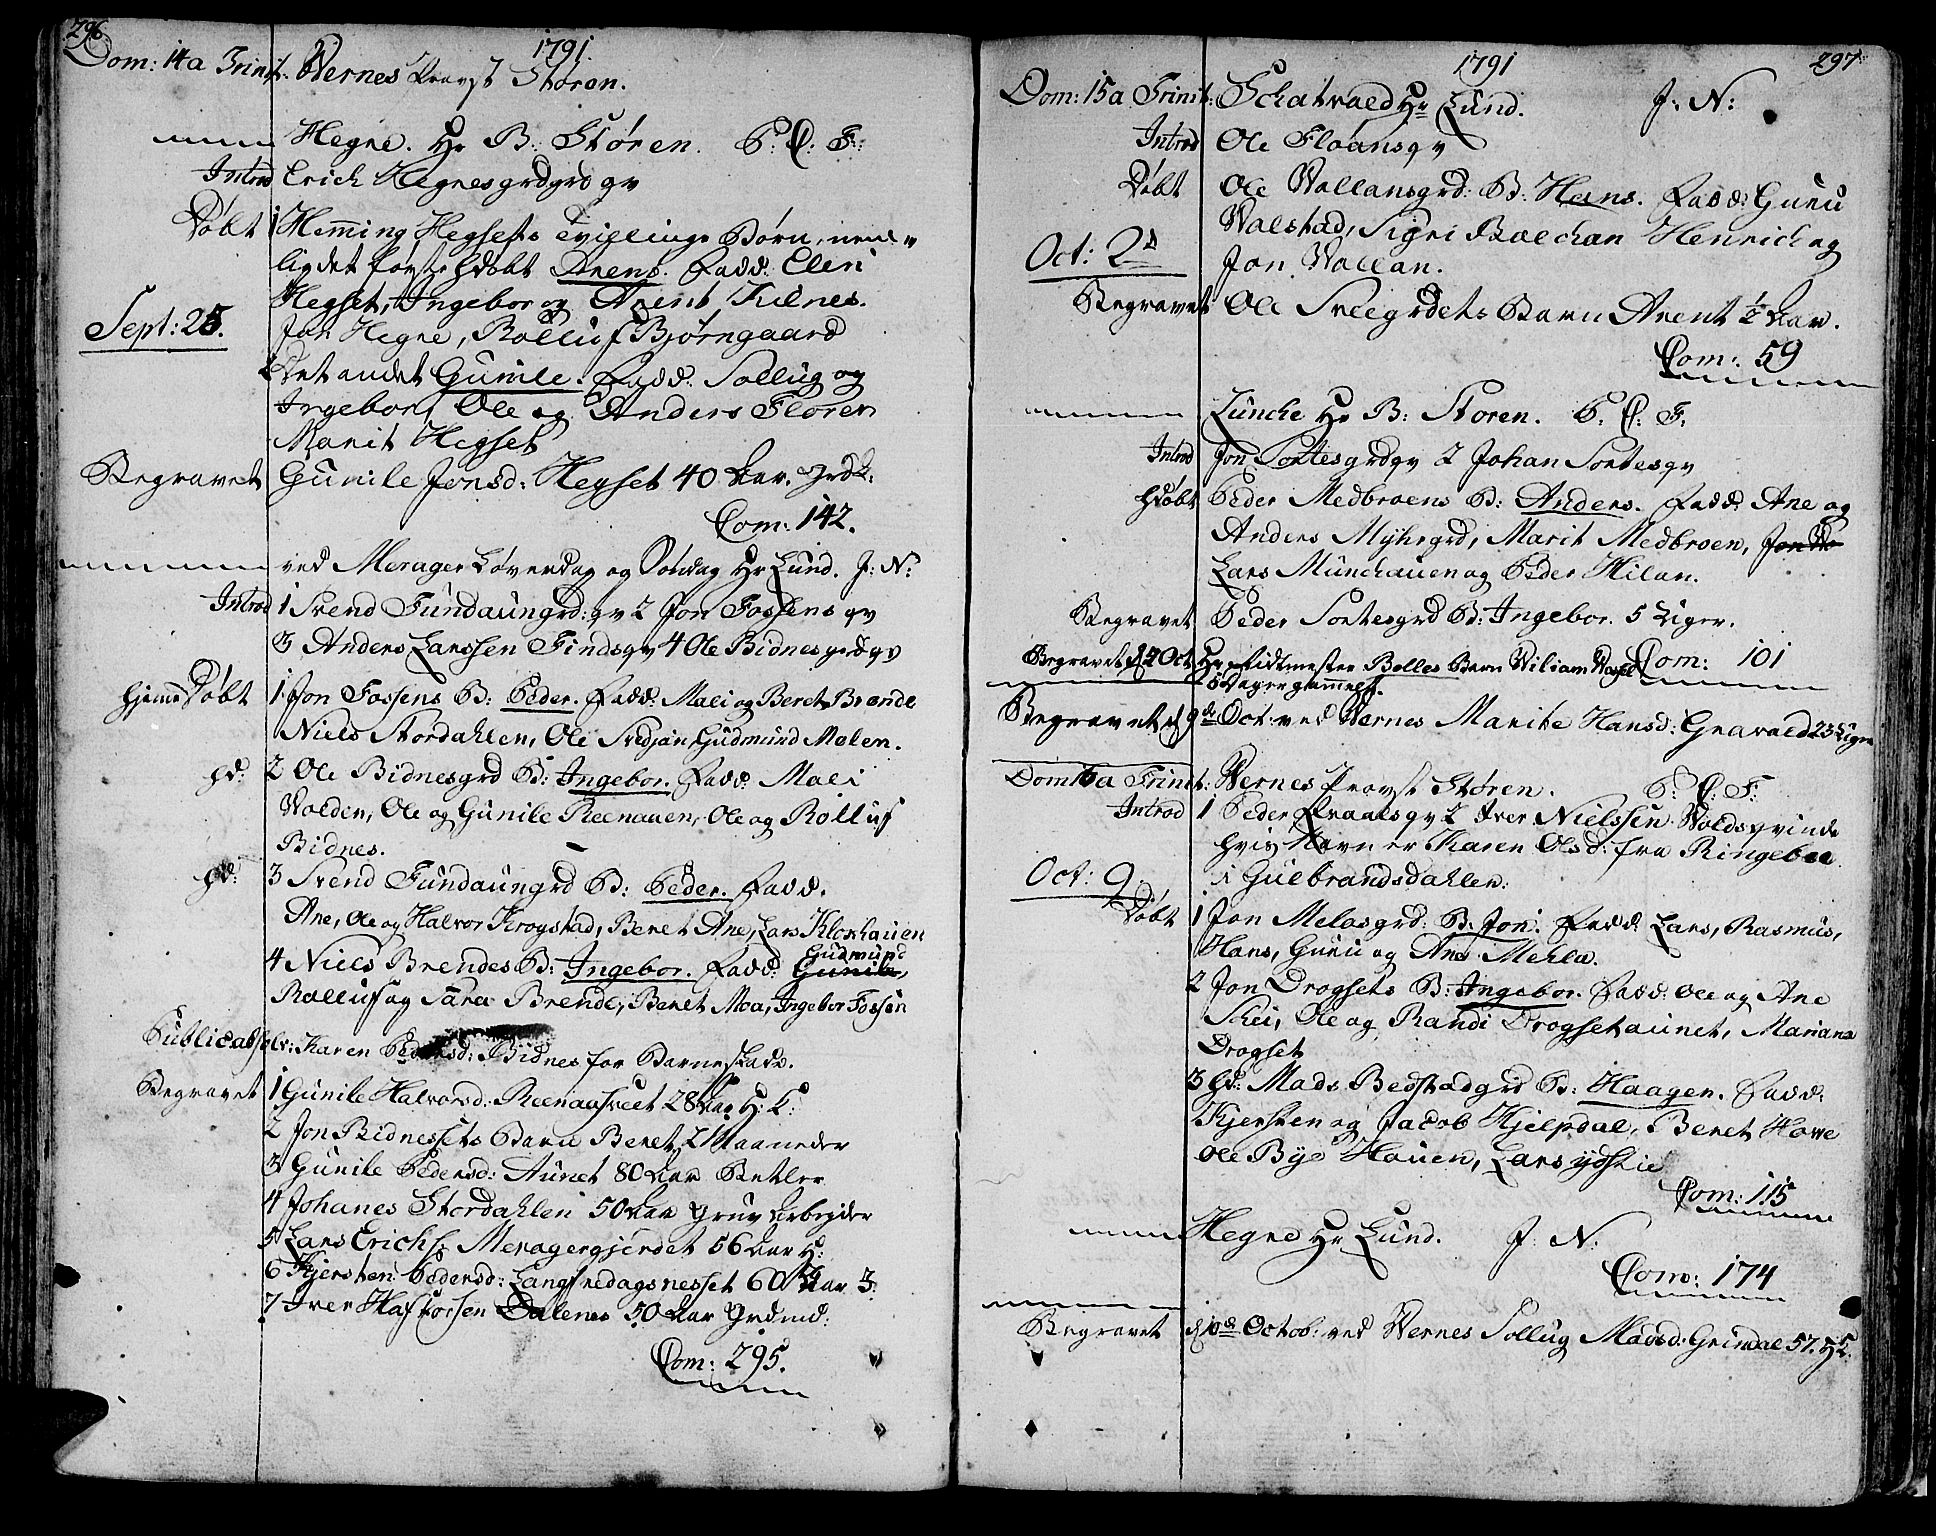 296.
1791.
Dom: 14 a Trinit. Wernes Provst Støren.
Hegne. Hr B: Støren. P. C. F:
Introd Erich Hegnesgrdgrd qv
Døbt 1 Hemming Hegsets Tvillinge Børn, nem-
lig det første hdøbt Arent. Fadd: Eleri
Hegset, Ingebor og Arent Kilnes.
Sept: 25. Jon Hegne, Rolluf Bjørngaard
Det andet Gunile. Fadd: Sollug og
Ingebor, Ole og Anders Floren
Marit Hegset
Begravet Gunile Jonsd: Hegset 40 Aar. Grdk.
Com: 142.
ved Merager Løverdag og Søndag Hr Lund. J: N:
Introd 1 Svend Fundaungrd: qv 2 Jon Fossens qv
3 Anders Larssen Findsqv 4 Ole Bidnesgrdqv
hjemeDøbt 1 Jon Fossens B: Peder. Fadd: Mali og Beret Brende
Niels Stordahlen, Ole Svedjan, Gudmund Molen.
hd: 2 Ole Bidnesgrd B: Ingebor. Fadd: Mali
Volden, Ole og Gunile Reenauen, Ole og Rolluf
Bidnes.
hd: 3 Svend Fundaungrd B: Peder. Fadd.
Ane, Ole og Halvor Krogstad, Beret Ane, Lars Kloxhauen
4 Niels Brendes B: Ingebor. Fadd: Gunile, Gudmund
Rolluf og Sara Brende, Beret Moa, Ingebor Fossen
Public absolv: Karen Pedersd: Bidnes for Barneskade.
Begravet 1 Gunile Halvorsd: Reenaasveet 28 Aar H: K:
2 Jon Bidnessets Barn Beret 2 Maaneder
3 Gunile Pedersd: Aunet 80 Aar Betler
4 Johanes Stordahlen 50 Aar Gruv Arbejder
5 Lars Erichs. Meragergjerdet 56 Aar H:
6 Kjersten Pedersd: Langfredagsnesset 60 Aar I:
7 Iver Hafstorsen Dalenes 50 Aar Grdmd:
Com: 295.
1791
297.
Dom: 15 a Trinit: Schatvald Hr Lund. J: N:
Introd Ole Floansqv
Døbt Ole Vollansgrd: B: Hans. Fadd: Guru
Valstad, Sigri Balchan Henrich og
Oct: 2d Jon Vollan.
Begravet Ole Sveegrdets Barn Arent 1/2 Aar.
Com: 59
Lunche Hr B: Storen. P. C. F.
Introd Jon Sortesgrdqv 2 Johan Sortesqv
hdøbt Peder Medbroens B: Anders. Fadd: Ane og
Anders Myhrgrd, Marit Medbroen, Jon
Lars Munchauen og Peder Milan.
Begravet Peder Sortesgrd B: Ingebor. 5 Uger.
Com: 101
Begravet d 4 Oct Hr Ridtmester Belles Barn Wiliam
8 Dager gammelt.
Begravet d 9de Oct: ved Wernes Marite Hansd: Gravald 23 Uger
Dom 16 a Trinit: Wernes Provst Støren. P. C. F:
Introd 1 Peder Praalsqv 2 Iver Nielssen Voldsqvinde
hvis Navn er Karen Olsd: fra Ringeboe
Oct: 9. i Guebrandsdahlen.
Døbt 1 Jon Melasgrd: B: Jon. Fadd: Lars, Rasmus,
Hans, Guru og Ane Mehla.
2 Jon Drogsets B: Ingebor. Fadd: Ole og Ane
Skei, Ole og Randi Drogsetaunet, Mariana
Drogset
3 hd: Mads Bedstadgrd B: Haagen. Fadd:
Kjersten og Jacob Hjelpdal, Beret Howe
Ole Bye Hauen, Lars ydstie
Com: 115
Hegne Hr Lund. J: N:
Com: 174
Begravet d 10de Octob: ved Wernes Sollug Madsd: Grindal 57. H K.